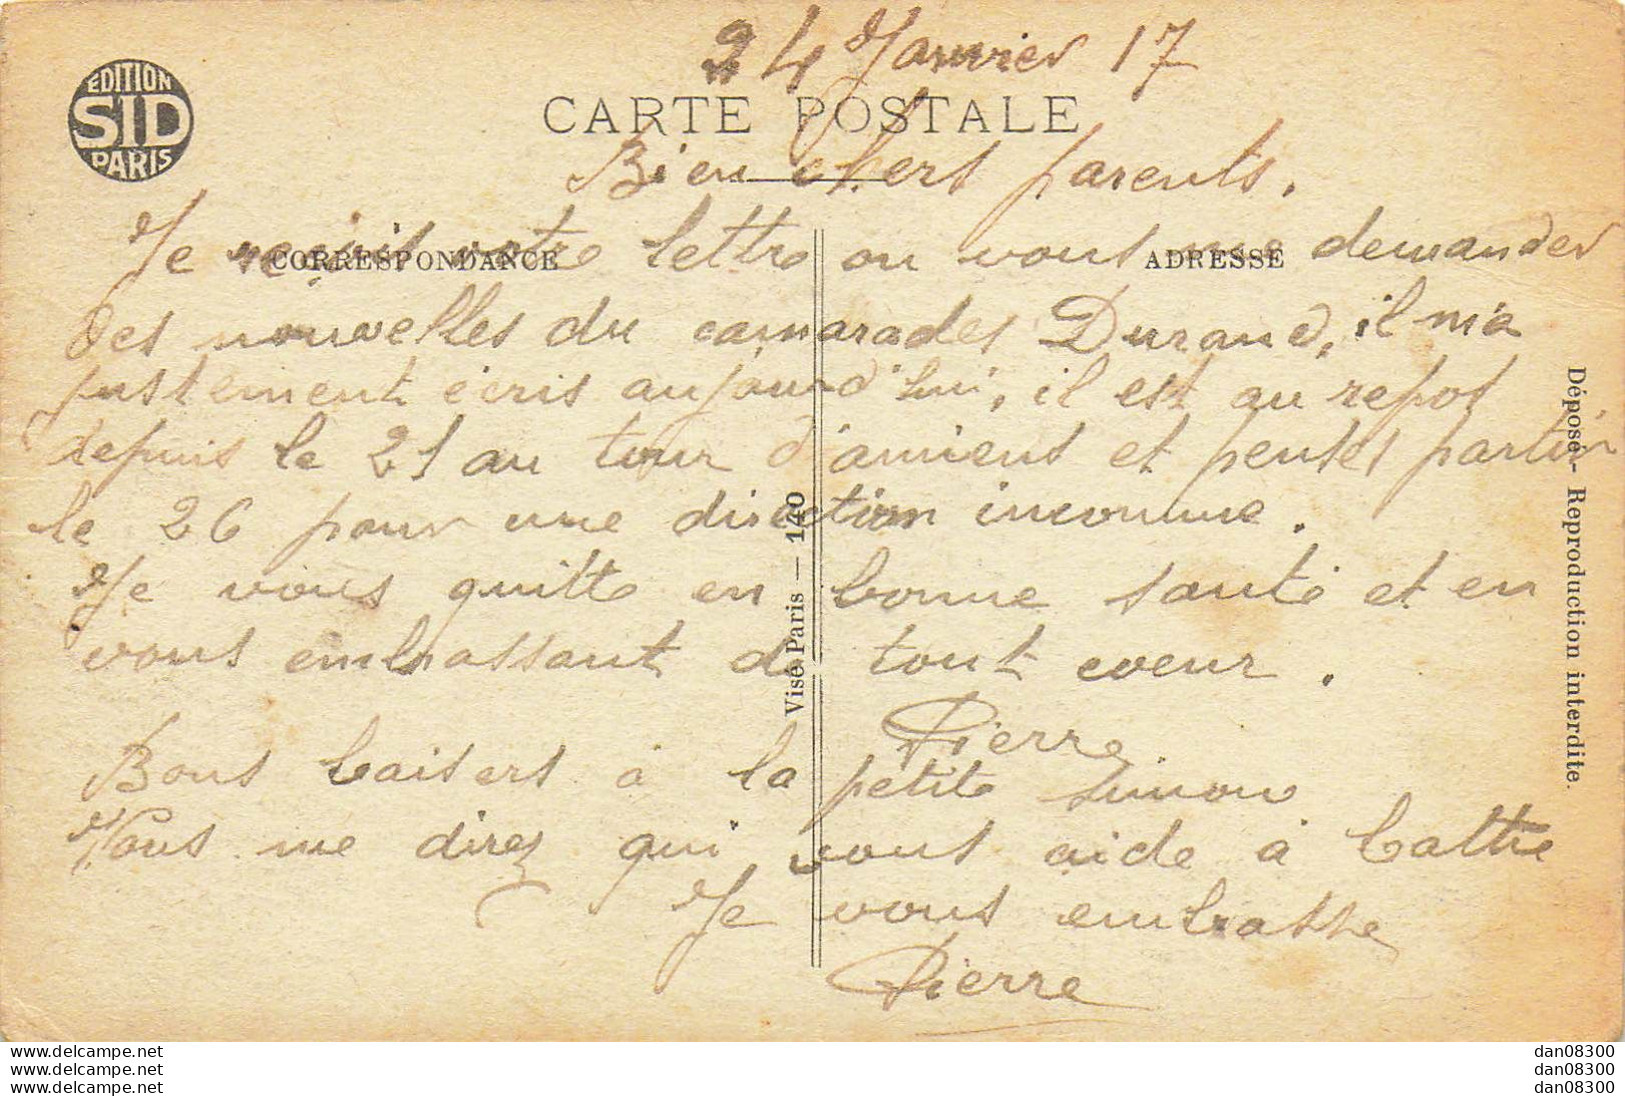 24 Janvier 17
EDITION
SID
PARIS
CARTE POSTALE
Bien chers parents.
CORRESPONDANCE
ADRESSE
Je reçuis votre lettre ou vous me demander
des nouvelles du camarades Durand, il m'a
justement écris aujourd'hui, il est au repos
depuis le 21 au tour d'amiens et penses partir
le 26 pour une direction inconnue.
Je vous quitte en bonne santé et en
vous embrassant de tout coeur.
Pierre
Bons baisers à la petite simone
Vous me direz qui vous aide à battre
Je vous embrasse
Pierre
Visé Paris — 140
Déposé - Reproduction interdite.
www.delcampe.net
www.delcampe.net
www.delcampe.net
dan08300
dan08300
dan08300